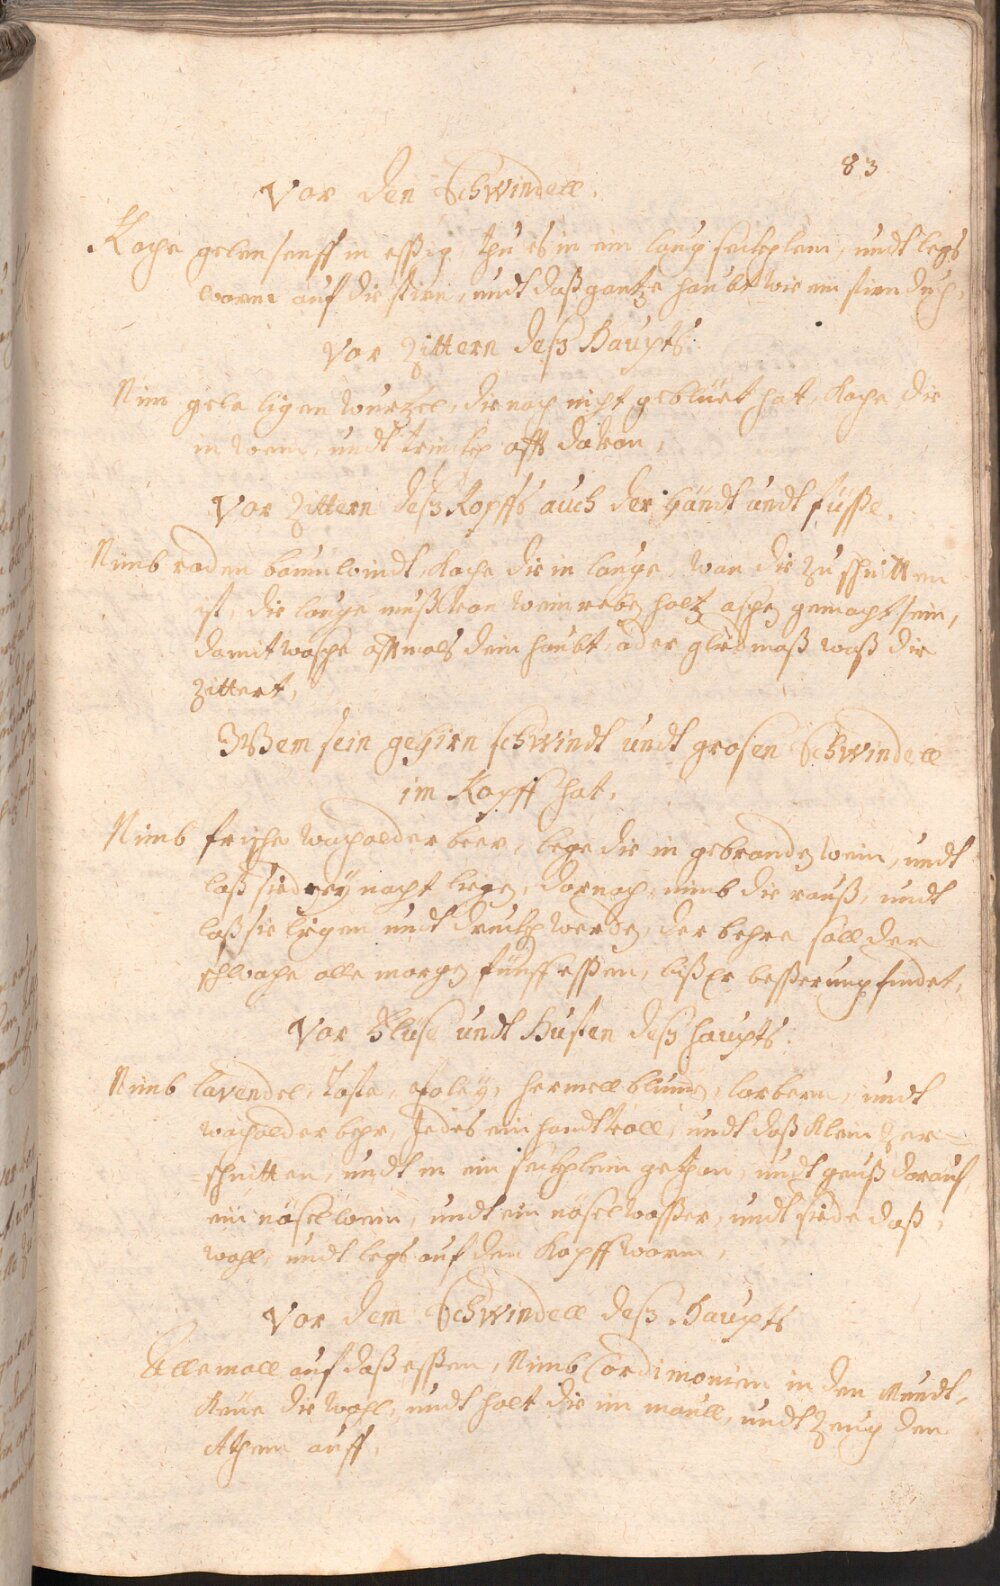 83
Vor den Schwindell.
Koche gelen senff in eßig, thu es in ein lang secklein, undt legs
warm auf die stirn, undt daß gantze haubt wie ein stirn duch,
Vor Zittern deß Haupts.
Nim gele ligen wurtzel, die noch nicht geblüet hat, Koche die
in wein, undt trinckh offt davon,
Vor Zittern deß Kopffs auch der Händt undt füsse.
Nimb baumwindt, Koche die in lauge, wan die zu schnitten
ist, die lauge muß von weinreben holtz aschen gemacht sein,
damit wasche offtmals dein haubt, oder gliedmaß waß dir
zittert,
Wem sein gehirn schwindt undt grosen Schwindell
im Kopff hat,
Nimb frische wacholder beer, lege die in gebranden wein, undt
laß sie drey nacht liegen, darnach nimb die rauß, undt
laß sie liegen undt druckh werden, der behre soll der
schwache alle morgen fünff essen, biß er besserung findet,
Vor Flüße undt Husten deß haupts.
Nimb lavendel, poley, hermell blumen, lorbern, undt
wacholder behr, Jedes ein handt voll, undt daß klein zer-
schnitten, undt in ein secklein gethan, undt geuß darauf
ein nösel wein, undt ein nösel wasser, undt siede daß,
wohl, undt legs auf den Kopff warm,
Vor dem Schwindell deß Haupts
Allemall auf daß essen, Nimb Cordimomem in den Mundt,
Keüe die wohl, undt halt die im maull, undt Zeug den
Athem auff,